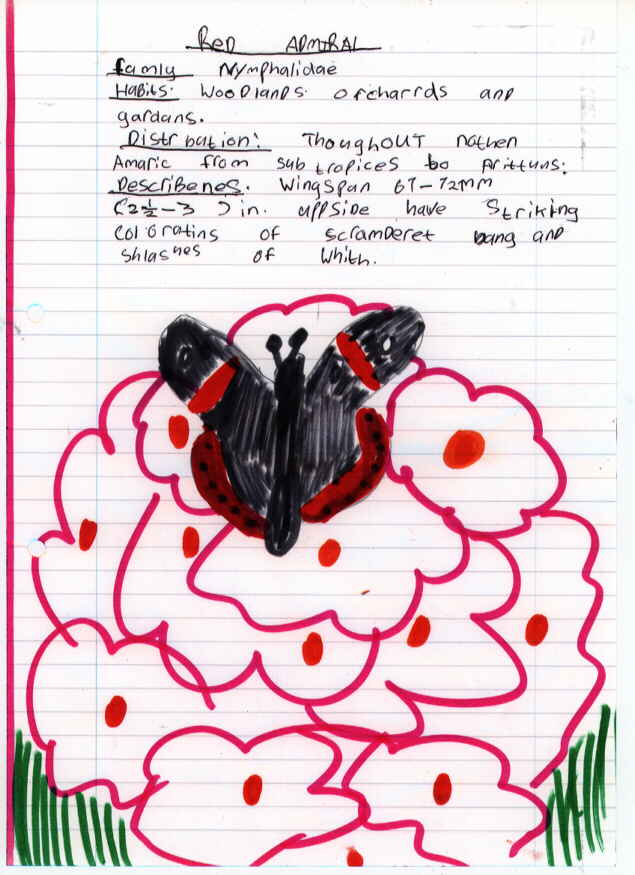 RED ADMIRAL
family Nymphalidae
Habits. Woodlands. orcharrds and
gardans.
Distrbution: Thoughout nothen
Amaric from sub tropices to prittuns:
Describenes. Wingspan 67-72mm
(2½-3) in. uppside have Striking
coloratins of scramderet bang and
shlashes of Whith.